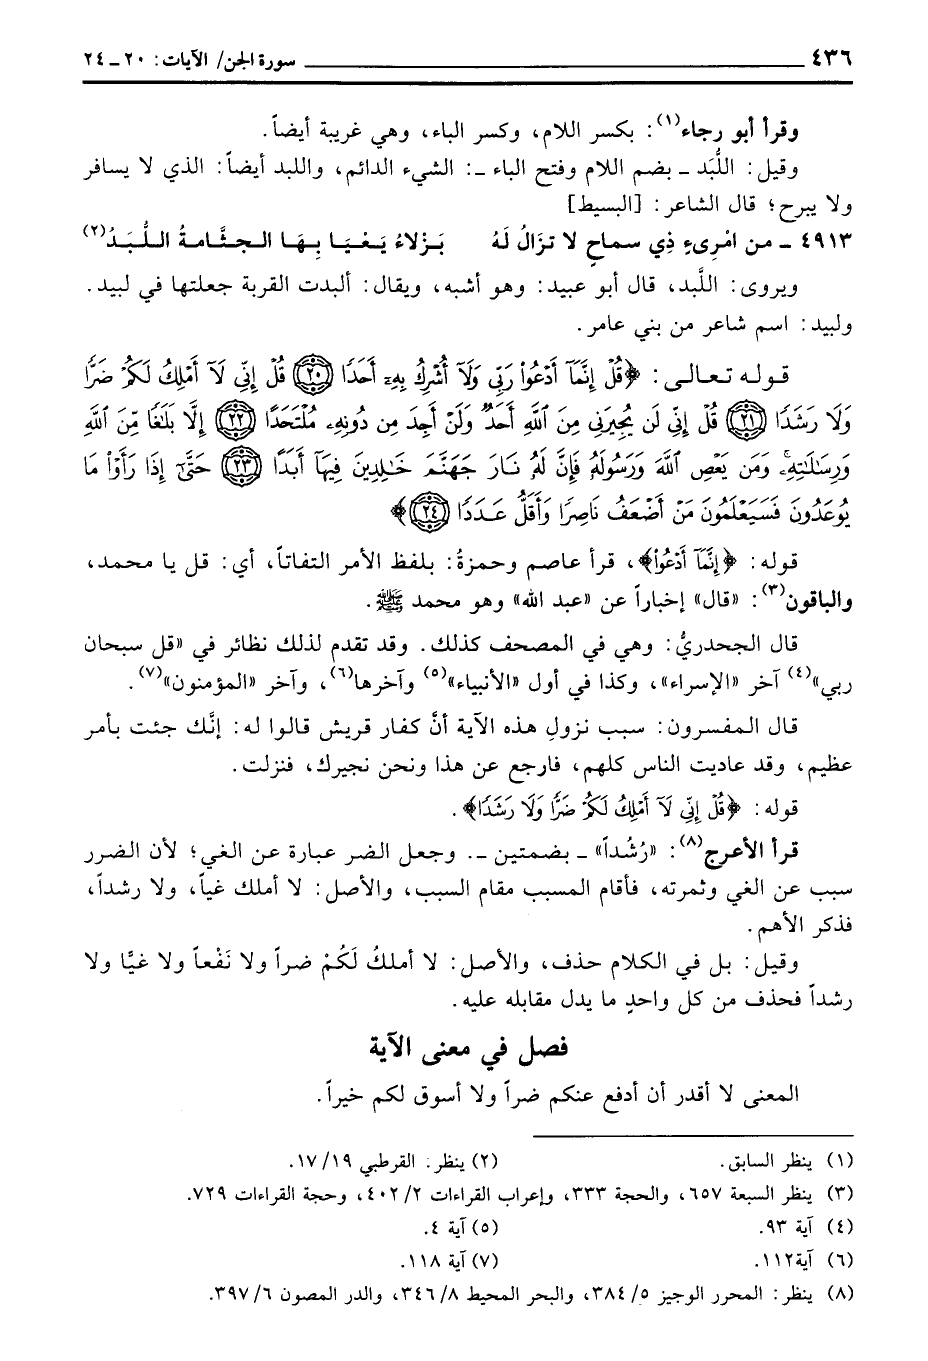 ٤٣٦ سورة الجن/ الآيات: ٢٠ ـ ٢٤
وقرأ أبو رجاء(١): بكسر اللام، وكسر الباء، وهي غريبة أيضاً.
وقيل: اللُّبَد ـ بضم اللام وفتح الباء ـ: الشيء الدائم، واللبد أيضاً: الذي لا يسافر
ولا يبرح؛ قال الشاعر: [البسيط]
٤٩١٣ ـ من امْرِىءٍ ذِي سماحٍ لا تزَالُ لَهُ بَزْلاءُ يَعْيَا بِهَا الجثَّامةُ اللُّبَدُ(٢)
ويروى: اللَّبد، قال أبو عبيد: وهو أشبه، ويقال: ألبدت القربة جعلتها في لبيد.
ولبيد: اسم شاعر من بني عامر.
قوله تعالى: ﴿قُلْ إِنَّمَآ أَدْعُواْ رَبِّى وَلَآ أُشْرِكُ بِهِۦٓ أَحَدًا ۝٢٠ قُلْ إِنِّى لَآ أَمْلِكُ لَكُمْ ضَرًّا
وَلَا رَشَدًا ۝٢١ قُلْ إِنِّى لَن يُجِيرَنِى مِنَ ٱللَّهِ أَحَدٌ وَلَنْ أَجِدَ مِن دُونِهِۦ مُلْتَحَدًا ۝٢٢ إِلَّا بَلَٰغًا مِّنَ ٱللَّهِ
وَرِسَٰلَٰتِهِۦ وَمَن يَعْصِ ٱللَّهَ وَرَسُولَهُۥ فَإِنَّ لَهُۥ نَارَ جَهَنَّمَ خَٰلِدِينَ فِيهَآ أَبَدًا ۝٢٣ حَتَّىٰٓ إِذَا رَأَوْاْ مَا
يُوعَدُونَ فَسَيَعْلَمُونَ مَنْ أَضْعَفُ نَاصِرًا وَأَقَلُّ عَدَدًا ۝٢٤﴾
قوله: ﴿إِنَّمَآ أَدْعُواْ﴾، قرأ عاصم وحمزةُ: بلفظ الأمر التفاتاً، أي: قل يا محمد،
والباقون(٣): «قال» إخباراً عن «عبد الله» وهو محمد ﷺ.
قال الجحدريُّ: وهي في المصحف كذلك. وقد تقدم لذلك نظائر في «قل سبحان
ربي»(٤) آخر «الإسراء»، وكذا في أول «الأنبياء»(٥) وآخرها(٦)، وآخر «المؤمنون»(٧).
قال المفسرون: سبب نزولِ هذه الآية أنَّ كفار قريش قالوا له: إنَّك جئت بأمر
عظيم، وقد عاديت الناس كلهم، فارجع عن هذا ونحن نجيرك، فنزلت.
قوله: ﴿قُلْ إِنِّى لَآ أَمْلِكُ لَكُمْ ضَرًّا وَلَا رَشَدًا﴾.
قرأ الأعرج(٨): «رُشُداً» ـ بضمتين ـ. وجعل الضر عبارة عن الغي؛ لأن الضرر
سبب عن الغي وثمرته، فأقام المسبب مقام السبب، والأصل: لا أملك غياً، ولا رشداً،
فذكر الأهم.
وقيل: بل في الكلام حذف، والأصل: لا أملكُ لَكُمْ ضراً ولا نَفْعاً ولا غيًّا ولا
رشداً فحذف من كل واحدٍ ما يدل مقابله عليه.
فصل في معنى الآية
المعنى لا أقدر أن أدفع عنكم ضراً ولا أسوق لكم خيراً.
(١) ينظر السابق. (٢) ينظر: القرطبي ١٩/ ١٧.
(٣) ينظر السبعة ٦٥٧، والحجة ٣٣٣، وإعراب القراءات ٢/ ٤٠٢، وحجة القراءات ٧٢٩.
(٤) آية ٩٣. (٥) آية ٤.
(٦) آية١١٢. (٧) آية ١١٨.
(٨) ينظر: المحرر الوجيز ٥/ ٣٨٤، والبحر المحيط ٨/ ٣٤٦، والدر المصون ٦/ ٣٩٧.